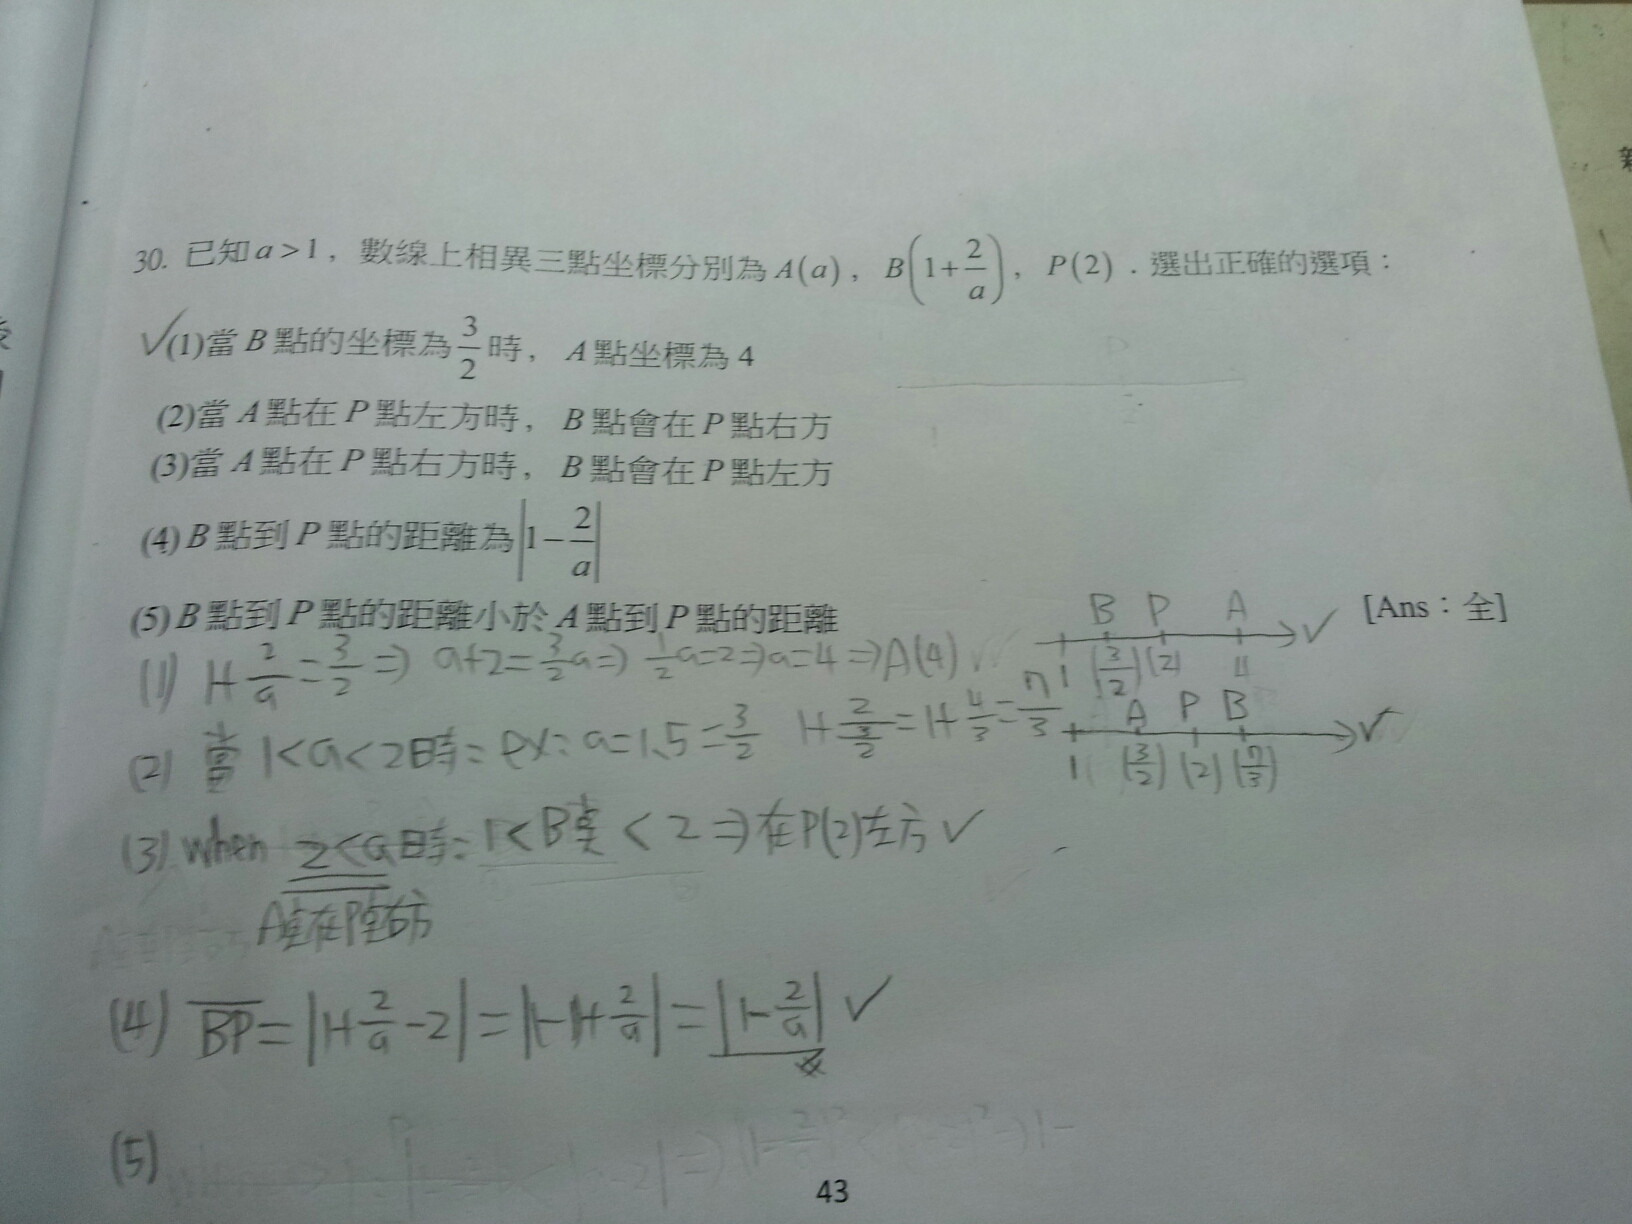 30. 已知 a > 1，數線上相異三點坐標分別為 A(a)，B(1+2/a)，P(2)．選出正確的選項：
✓(1)當 B 點的坐標為 3/2 時，A 點坐標為 4
(2)當 A 點在 P 點左方時，B 點會在 P 點右方
(3)當 A 點在 P 點右方時，B 點會在 P 點左方
(4) B 點到 P 點的距離為 |1-2/a|
(5) B 點到 P 點的距離小於 A 點到 P 點的距離 [Ans：全]
B P A
1 (3/2) (2) 4 ✓
(1) 1+2/a=3/2 ⇒ a+2=3/2a ⇒ 1/2a=2 ⇒ a=4 ⇒ A(4) ✓
A P B
1 (3/2) (2) (7/3) ✓
(2) 當 1<a<2時: ex: a=1.5=3/2 1+2/(3/2)=1+4/3=7/3
(3) when 2<a時: 1<B點<2 ⇒ 在P(2)左方 ✓
A點在P點右方
(4) BP=|1+2/a-2|=|-1+2/a|=|1-2/a| ✓
(5)
43